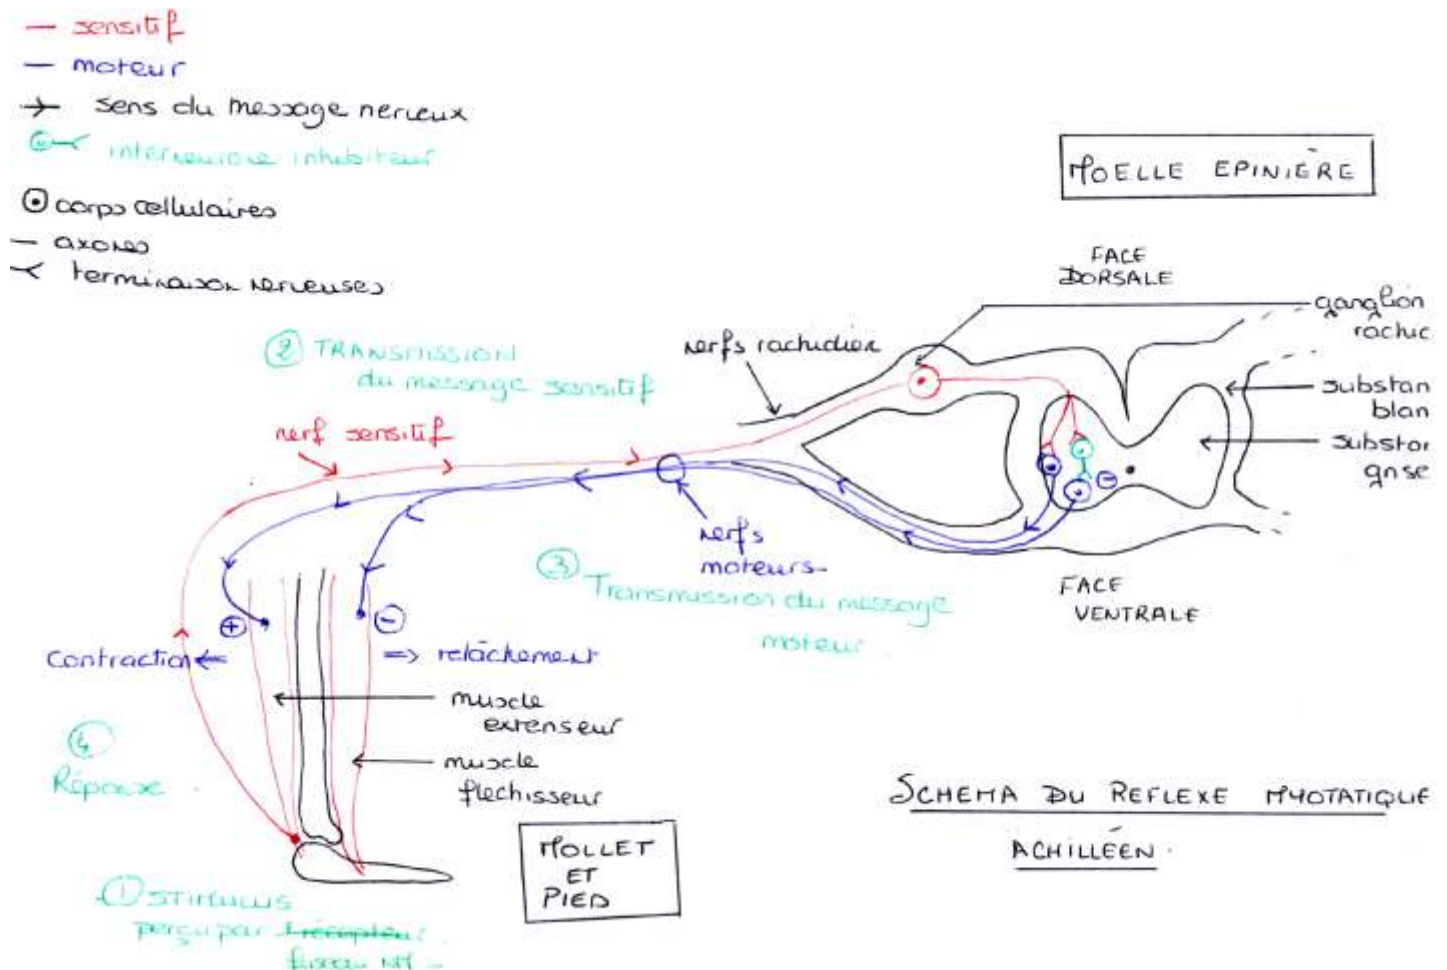 sensitif
moteur
sens du message nerveux
interneurone inhibiteur
corps cellulaires
axones
terminaison nerveuses
MOELLE EPINIÈRE
FACE
DORSALE
ganglion
rachic
nerfs rachidien
substan
blan
substan
grise
② TRANSMISSION
du message sensitif
nerf sensitif
nerfs
moteurs
③ Transmission du message
moteur
FACE
VENTRALE
+
-
-
contraction
⇒ relâchement
muscle
extenseur
muscle
flechisseur
④
Réponse
MOLLET
ET
PIED
SCHEMA DU REFLEXE MYOTATIQUE
ACHILLÉEN.
① STIMULUS
perçu par récepteur
fuseau NM